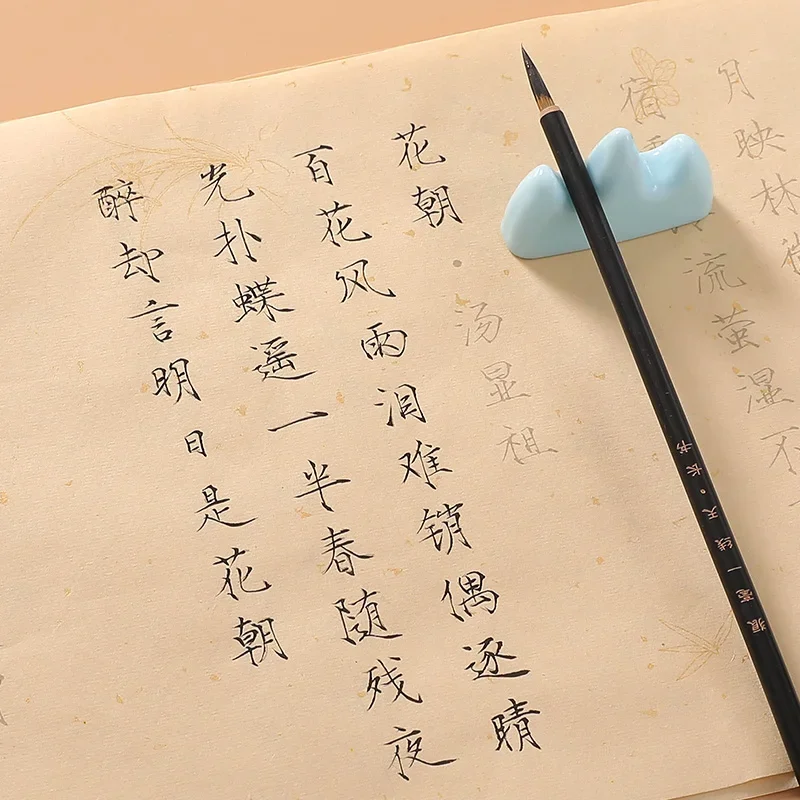 月映林微
宿
流萤湿不
花朝 汤显祖
百花风雨泪难销偶逐晴
光扑蝶遥一半春随残夜
醉却言明日是花朝
狼毫一线天。长书